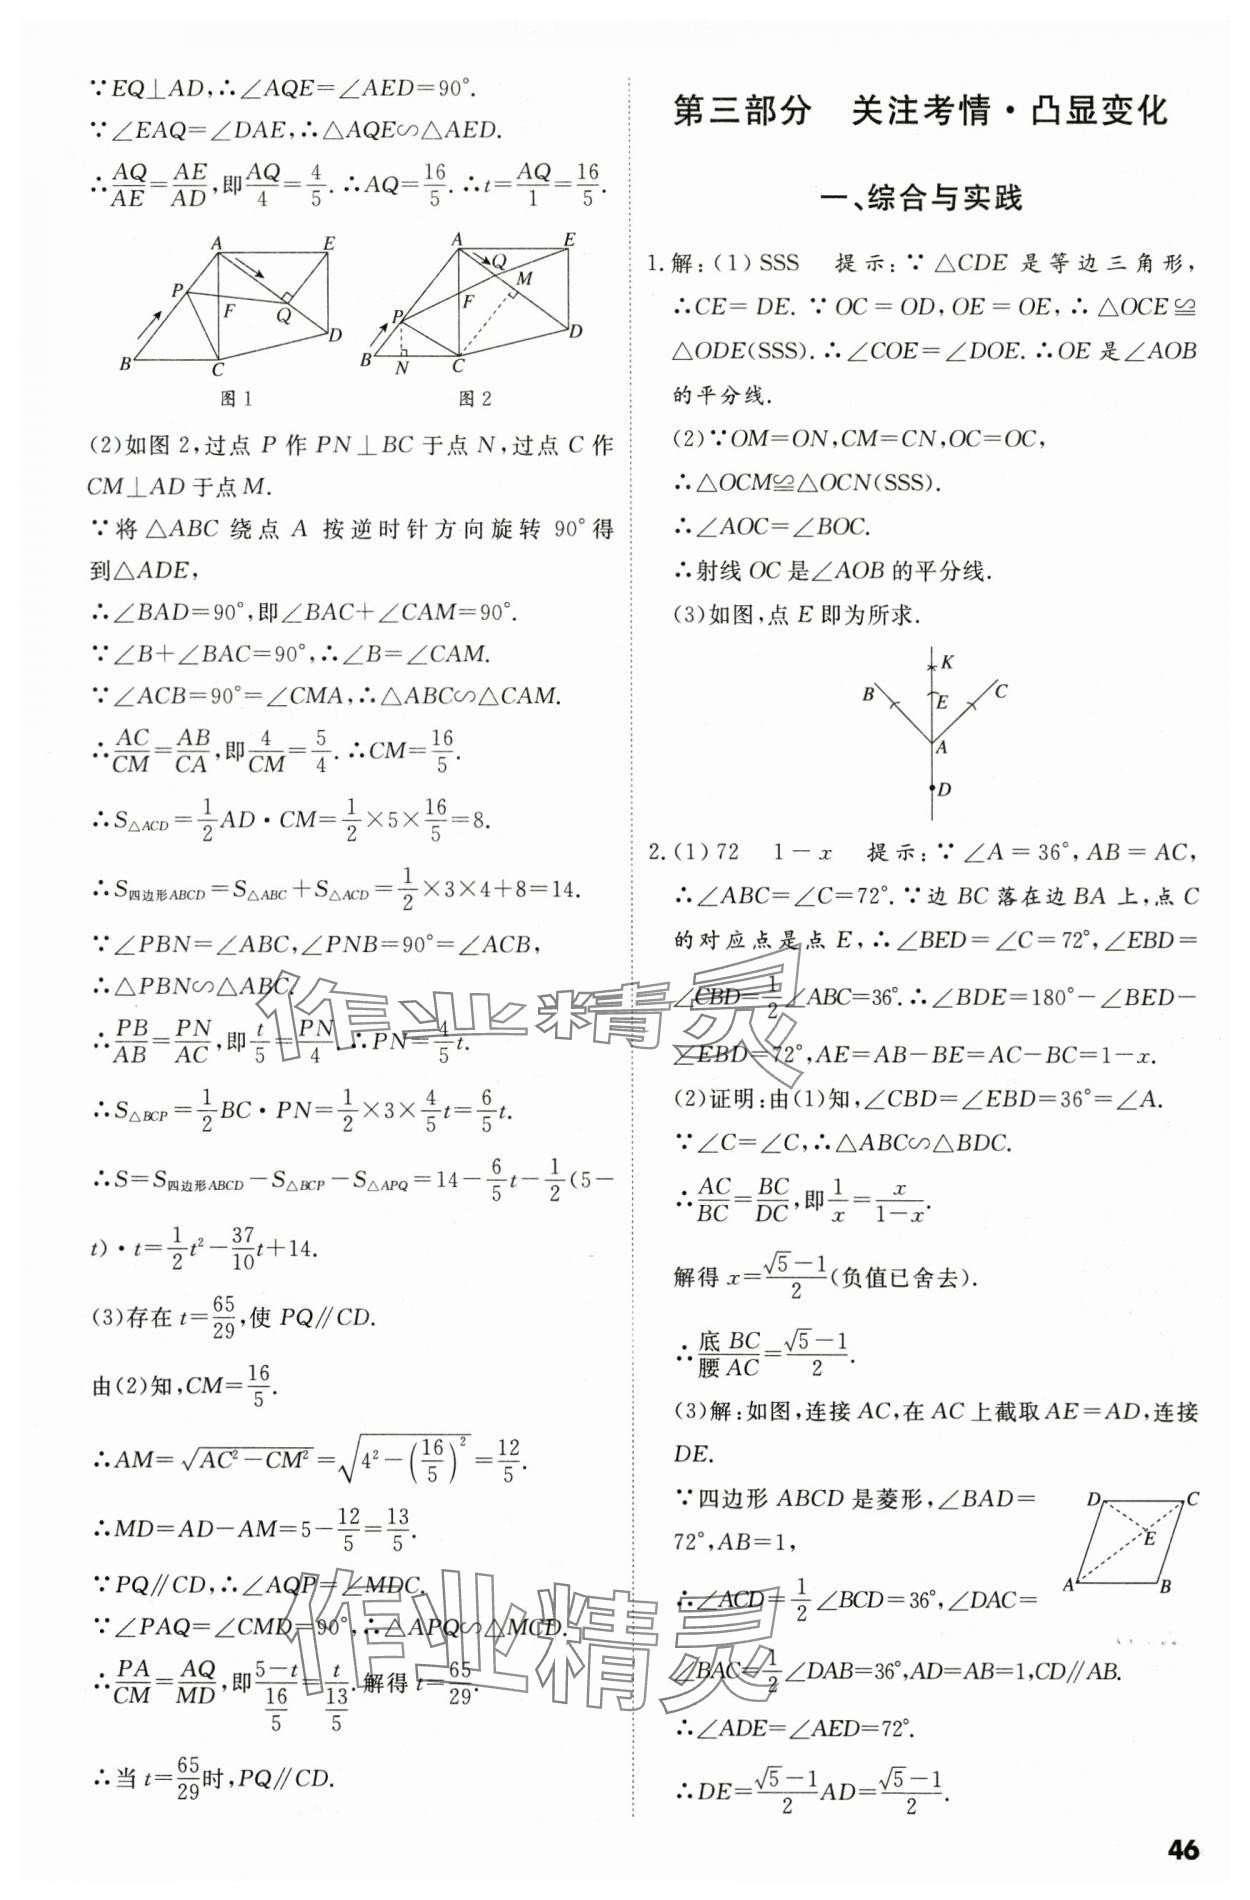 ∵EQ⊥AD,∴∠AQE=∠AED=90°.
∵∠EAQ=∠DAE,∴△AQE∽△AED.
∴AQ/AE=AE/AD,即AQ/4=4/5.∴AQ=16/5.∴t=AQ/1=16/5.
A E P F Q D B C
图1
A E Q M P F D B N C
图2
(2)如图2,过点P作PN⊥BC于点N,过点C作
CM⊥AD于点M.
∵将△ABC绕点A按逆时针方向旋转90°得
到△ADE,
∴∠BAD=90°,即∠BAC+∠CAM=90°.
∵∠B+∠BAC=90°,∴∠B=∠CAM.
∵∠ACB=90°=∠CMA,∴△ABC∽△CAM.
∴AC/CM=AB/CA,即4/CM=5/4.∴CM=16/5.
∴S△ACD=1/2AD·CM=1/2×5×16/5=8.
∴S四边形ABCD=S△ABC+S△ACD=1/2×3×4+8=14.
∵∠PBN=∠ABC,∠PNB=90°=∠ACB,
∴△PBN∽△ABC.
∴PB/AB=PN/AC,即t/5=PN/4.∴PN=4/5t.
∴S△BCP=1/2BC·PN=1/2×3×4/5t=6/5t.
∴S=S四边形ABCD-S△BCP-S△APQ=14-6/5t-1/2(5-
t)·t=1/2t²-37/10t+14.
(3)存在t=65/29,使PQ∥CD.
由(2)知,CM=16/5.
∴AM=√(AC²-CM²)=√(4²-(16/5)²)=12/5.
∴MD=AD-AM=5-12/5=13/5.
∵PQ∥CD,∴∠AQP=∠MDC.
∵∠PAQ=∠CMD=90°,∴△APQ∽△MCD.
∴PA/CM=AQ/MD,即(5-t)/(16/5)=t/(13/5).解得t=65/29.
∴当t=65/29时,PQ∥CD.
第三部分 关注考情·凸显变化
一、综合与实践
1.解:(1)SSS 提示:∵△CDE是等边三角形,
∴CE=DE.∵OC=OD,OE=OE,∴△OCE≌
△ODE(SSS).∴∠COE=∠DOE.∴OE是∠AOB
的平分线.
(2)∵OM=ON,CM=CN,OC=OC,
∴△OCM≌△OCN(SSS).
∴∠AOC=∠BOC.
∴射线OC是∠AOB的平分线.
(3)如图,点E即为所求.
K B E C A D
2.(1)72 1-x 提示:∵∠A=36°,AB=AC,
∴∠ABC=∠C=72°.∵边BC落在边BA上,点C
的对应点是点E,∴∠BED=∠C=72°,∠EBD=
∠CBD=1/2∠ABC=36°.∴∠BDE=180°-∠BED-
∠EBD=72°,AE=AB-BE=AC-BC=1-x.
(2)证明:由(1)知,∠CBD=∠EBD=36°=∠A.
∵∠C=∠C,∴△ABC∽△BDC.
∴AC/BC=BC/DC,即1/x=x/(1-x).
解得x=(√5-1)/2(负值已舍去).
∴底BC/腰AC=(√5-1)/2.
(3)解:如图,连接AC,在AC上截取AE=AD,连接
DE.
∵四边形ABCD是菱形,∠BAD=
72°,AB=1,
D C E A B
∴∠ACD=1/2∠BCD=36°,∠DAC=
∠BAC=1/2∠DAB=36°,AD=AB=1,CD∥AB.
∴∠ADE=∠AED=72°.
∴DE=(√5-1)/2AD=(√5-1)/2.
46
作业精灵
作业精灵